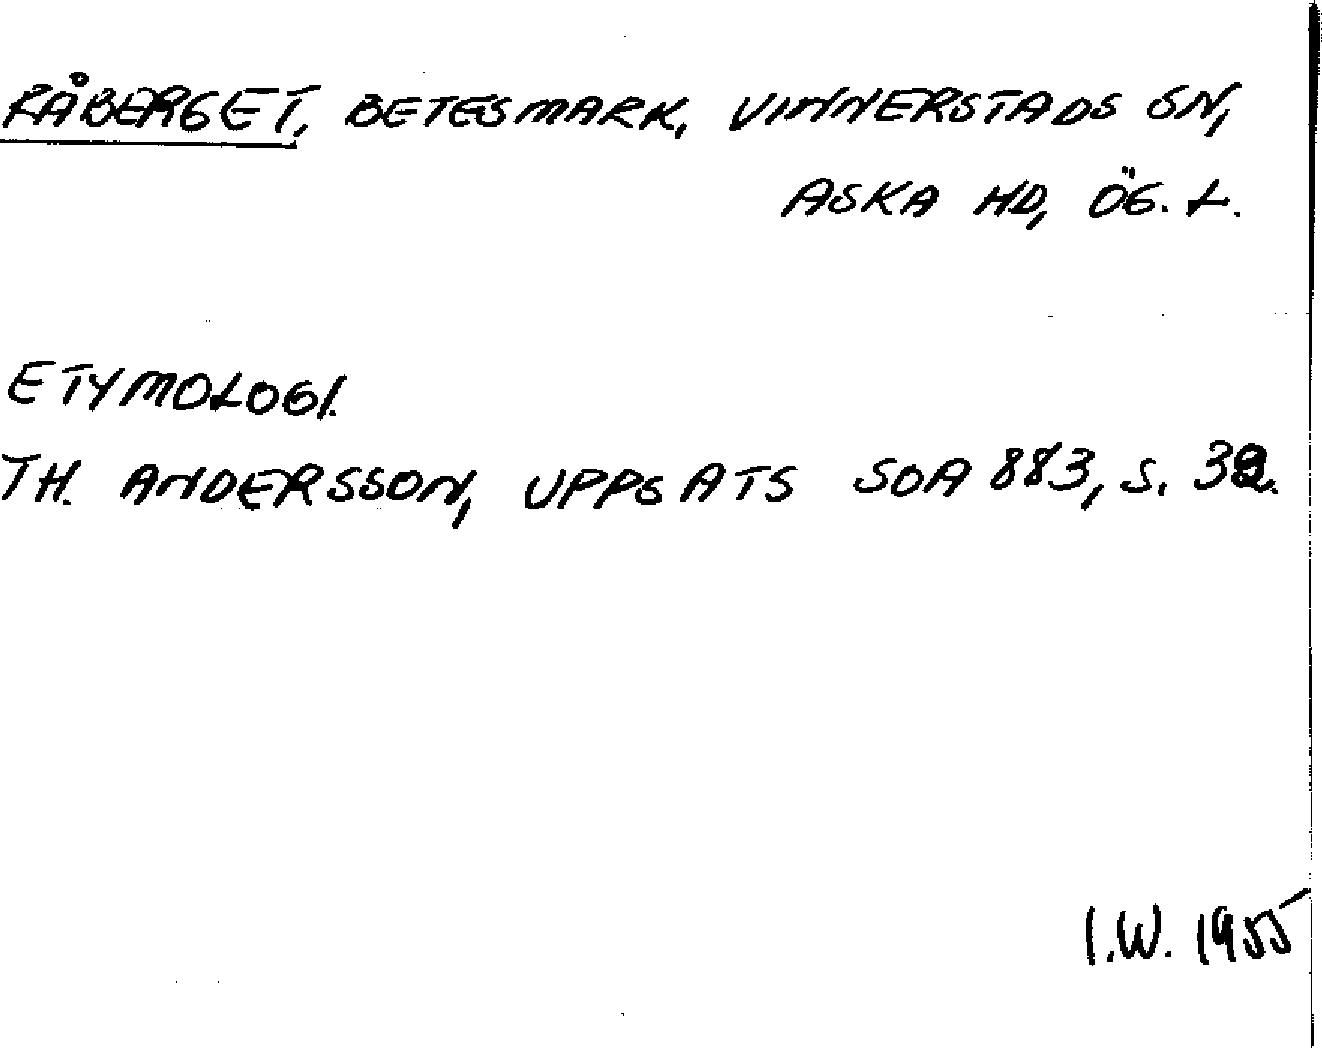 RÅBERGET, BETESMARK, VINNERSTADS SN,
ASKA HD, ÖG. L.
ETYMOLOGI.
TH. ANDERSSON, UPPSATS SOA 883, S. 32.
I.W. 1955